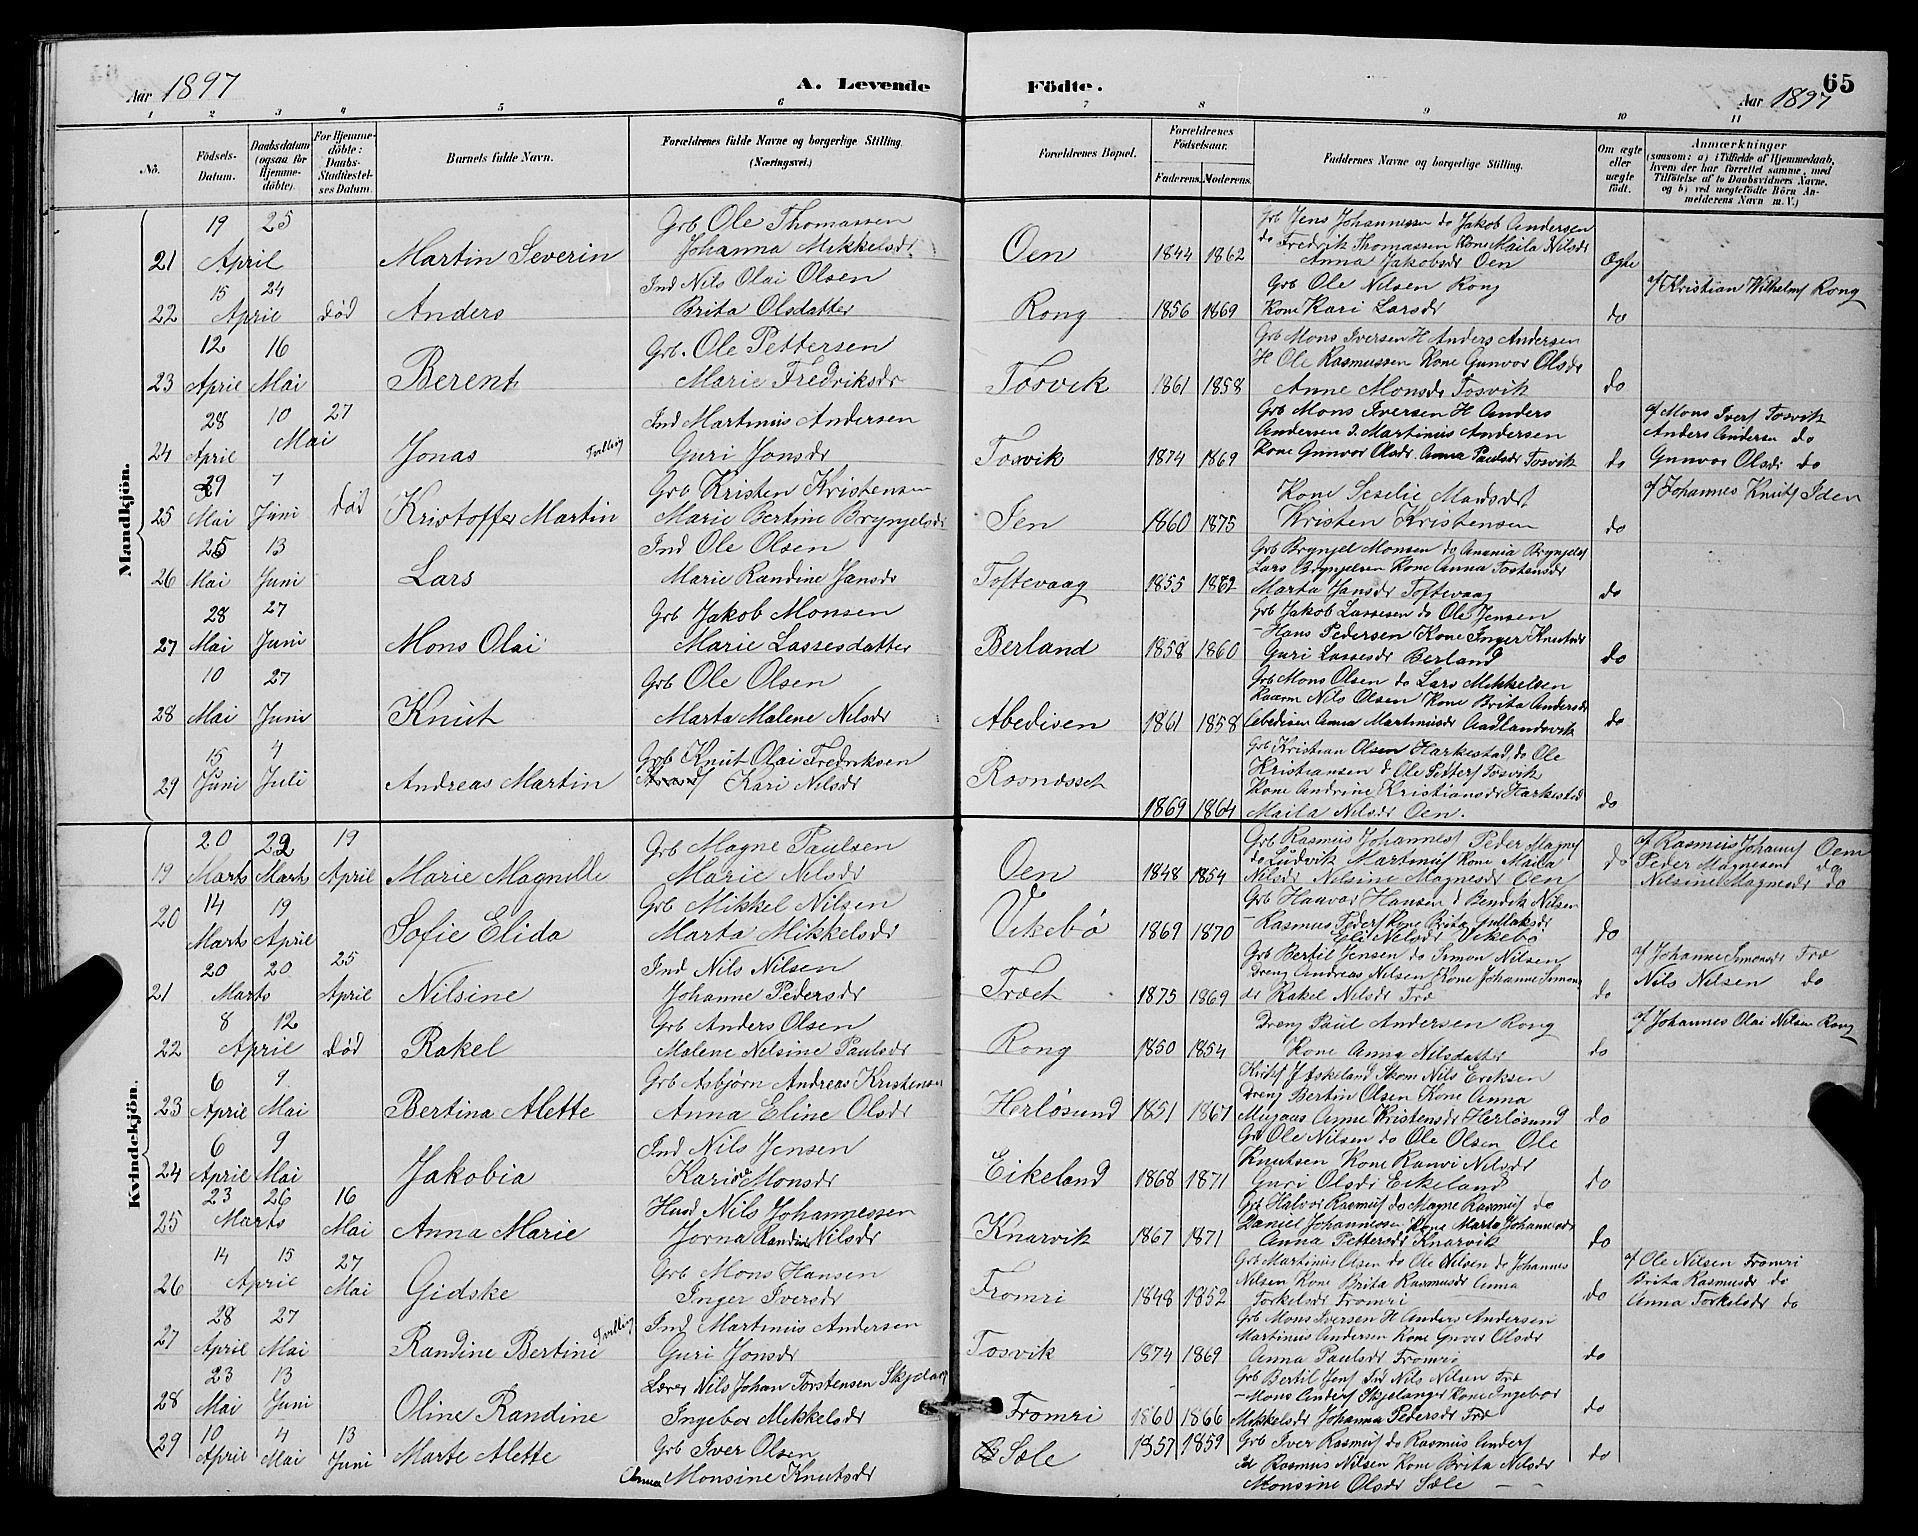 Aar 1897
A. Levende
Födte.
Aar 1897
65
1 2 3 4 5 6 7 8 9 10 11
No.
Födsels-Datum.
Daabsdatum (ogsaa for Hjemme-döbte).
For Hjemme-döbte: Daabs-Stadfæstel-ses Datum.
Barnets fulde Navn.
Forældrenes fulde Navne og borgerlige Stilling. (Næringsvei.)
Forældrenes Bopæl.
Forældrenes Födselsaar.
Faderens. Moderens.
Faddernes Navne og borgerlige Stilling.
Om ægte eller uægte födt.
Anmærkninger
(saasom: a) i Tilfælde af Hjemmedaab, hvem der har forrettet samme, med Tilföielse af to Daabsvidners Navne, og b) ved uægtefödte Börn An-melderens Navn m. V.)
Mandkjön.
19 25 Grb Ole Thomassen Grb Jens Johannessen do Jakob Andersen
Johanna Mikkelsdr do Fredrik Thomassen Kone Maila Nilsdr
21 April Martin Severin Oen 1844 1862 Anna Jakobsdr Oen Ægte
15 24 Ind Nils Olai Olsen Grb Ole Nilsen Rong af Kristian Wilhelms Rong
22 April død Anders Brita Olsdatter Rong 1856 1869 Kone Kari Larsdr do
12 16 Grb. Ole Pettersen Grb Mons Iversen H Anders Andersen
H Ole Rasmussen Kone Gunvor Olsdr
23 April Mai Berent Marie Fredriksdr Tosvik 1861 1858 Anne Monsdr Tosvik do
28 10 27 Ind Martinus Andersen Grb Mons Iversen H Anders af Mons Ivers Tosvik
Mai Andersen I. Martinius Andersen Anders Andersen do
24 April Jonas Tvilling Guri Jonsdr Tosvik 1874 1869 Kone Gunvor Olsdr Anna Paulsdr Tosvik do Gunvor Olsdr do
29 7 Grb Kristen Kristensen Kone Seselie Monsdr af Johannes Knuts Iden
25 Mai Juni død Kristoffer Martin Marie Bertine Brynjelsdr Ien 1860 1875 Kristen Kristensen do
25 13 Ind Ole Olsen Grb Brynjel Monsen do Anania Brynjels
Lars Brynjelsen Kone Anna Tostensdr
26 Mai Juni Lars Marie Randine Jansdr Toftevaag 1855 1862 Marta Jansdr Toftevaag do
28 27 Grb Jakob Monsen Grb Jakob Lassesen do Ole Jensen
- Hans Pedersen Kone Inger Knutsdr
27 Mai Juni Mons Olai Marie Lassesdatter Berland 1858 1860 Guri Lassesdr Berland do
10 27 Grb Ole Olsen Grb Mons Olsen do Lars Mikkelsen
Nils Olsen Kone Brita Andersdr
28 Mai Juni Knut Marta Malene Nilsdr Abedisen 1861 1858 Anna Martinusdr Aadlandsvik do
15 4 Grb Knut Olai Fredriksen Grb Kristian Olsen Harkestad, do Ole
Kristiansen d Ole Petters Tosvik
29 Juni Juli Andreas Martin Kari Nilsdr Rosnæsset Kone Andrine Kristiansdr Harkestad
1869 1864 Maila Nilsdr Oen. do
Kvindekjön.
20 22 19 Grb Magne Paulsen Grb Rasmus Johannes Peder Magnes af Rasmus Johans Oen
do Ludvik Martinus Kone Maila do Peder Magnesen do
19 Marts Marts April Marie Magnille Marie Nilsdr Oen 1848 1854 Nilsdr Nilsine Magnesdr Oen Nilsine Magnesdr do
14 19 Grb Mikkel Nilsen Grb Haavar Hansen d Bendik Nilsen
- Rasmus Peders Kone Brita Gullaksdr
20 Marts April Sofie Elida Marta Mikkelsdr Vikebø 1869 1870 Eli Nilsdr Vikebø do
20 20 25 Ind Nils Nilsen Grb Bertil Jensen do Simon Nilsen af Johanne Simonsdr Træ
Dreng Andreas Nilsen Kone Johanne Simons
21 Marts April Nilsine Johanne Pedersdr Træet 1875 1869 dr Rakel Nilsdr Træ do Nils Nilsen do
8 12 Grb Anders Olsen Dreng Paul Andersen Rong af Johannes Olai Nilsen Rong
22 April død Rakel Malene Nilsine Paulsdr Rong 1850 1854 Kone Anna Nilsdatter do
6 9 Grb Asbjørn Andreas Kristensen Askeland Skom Nils Eriksen
Dreng Bertin Olsen Kone Anna
23 April Mai Bertina Alette Anna Eline Olsdr Herløsund 1851 1867 Mugaas Anne Kristensdr Herløsund do
6 9 Ind Nils Jensen Grb Ole Nilsen do Ole Olsen Ole
Knutsen Kone Ranvi Nilsdr
24 April Mai Jakobia Kari Monsdr Eikeland 1868 1871 Guri Olsdr Eikeland do
23 26 16 Husd Nils Johannessen Grb Halvor Rasmus do Magne Rasmus do
Daniel Johannessen Kone Marta Johannesdr
25 Marts Mai Anna Marie Jorna Randine Nilsdr Knarvik 1867 1871 Anna Pettersdr Knarvik do
14 15 27 Grb Mons Hansen Grb Martinus Olsen do Ole Nilsen do Johannes af Ole Nilsen Fromri
Nilsen Kone Brita Rasmusdr Anna Brita Rasmusdr do
26 April Mai Gidske Inger Iversdr Fromri 1848 1852 Torkelsdr Fromri do Anna Torkelsdr do
28 27 Ind Martinus Andersen Grb Mons Iversen H Anders Andersen
Martinus Andersen Kone Gunvor Olsdr
27 April Mai Randine Bertine Tvilling Guri Jonsdr Tosvik 1874 1869 Anna Paulsdr Fromri do
23 13 Lærer Nils Johan Torstensen Skjelanger Grb Bertil Jens Ind Nils Nilsen Træ
- Mons Anders Skjelanger Kone Ingebor
28 Mai Juni Oline Randine Ingebor Mikkelsdr Fromri 1860 1866 Mikkelsdr Johanna Pedersdr Træ do
10 4 13 Grb Iver Olsen Grb Iver Rasmus do Rasmus Anders
29 April Mai Juni Marte Alette Sæle 1857 1859 Rasmus Nilsen Kone Brita Nilsdr do
Anna Monsine Knutsdr Monsine Olsdr Sæle - -